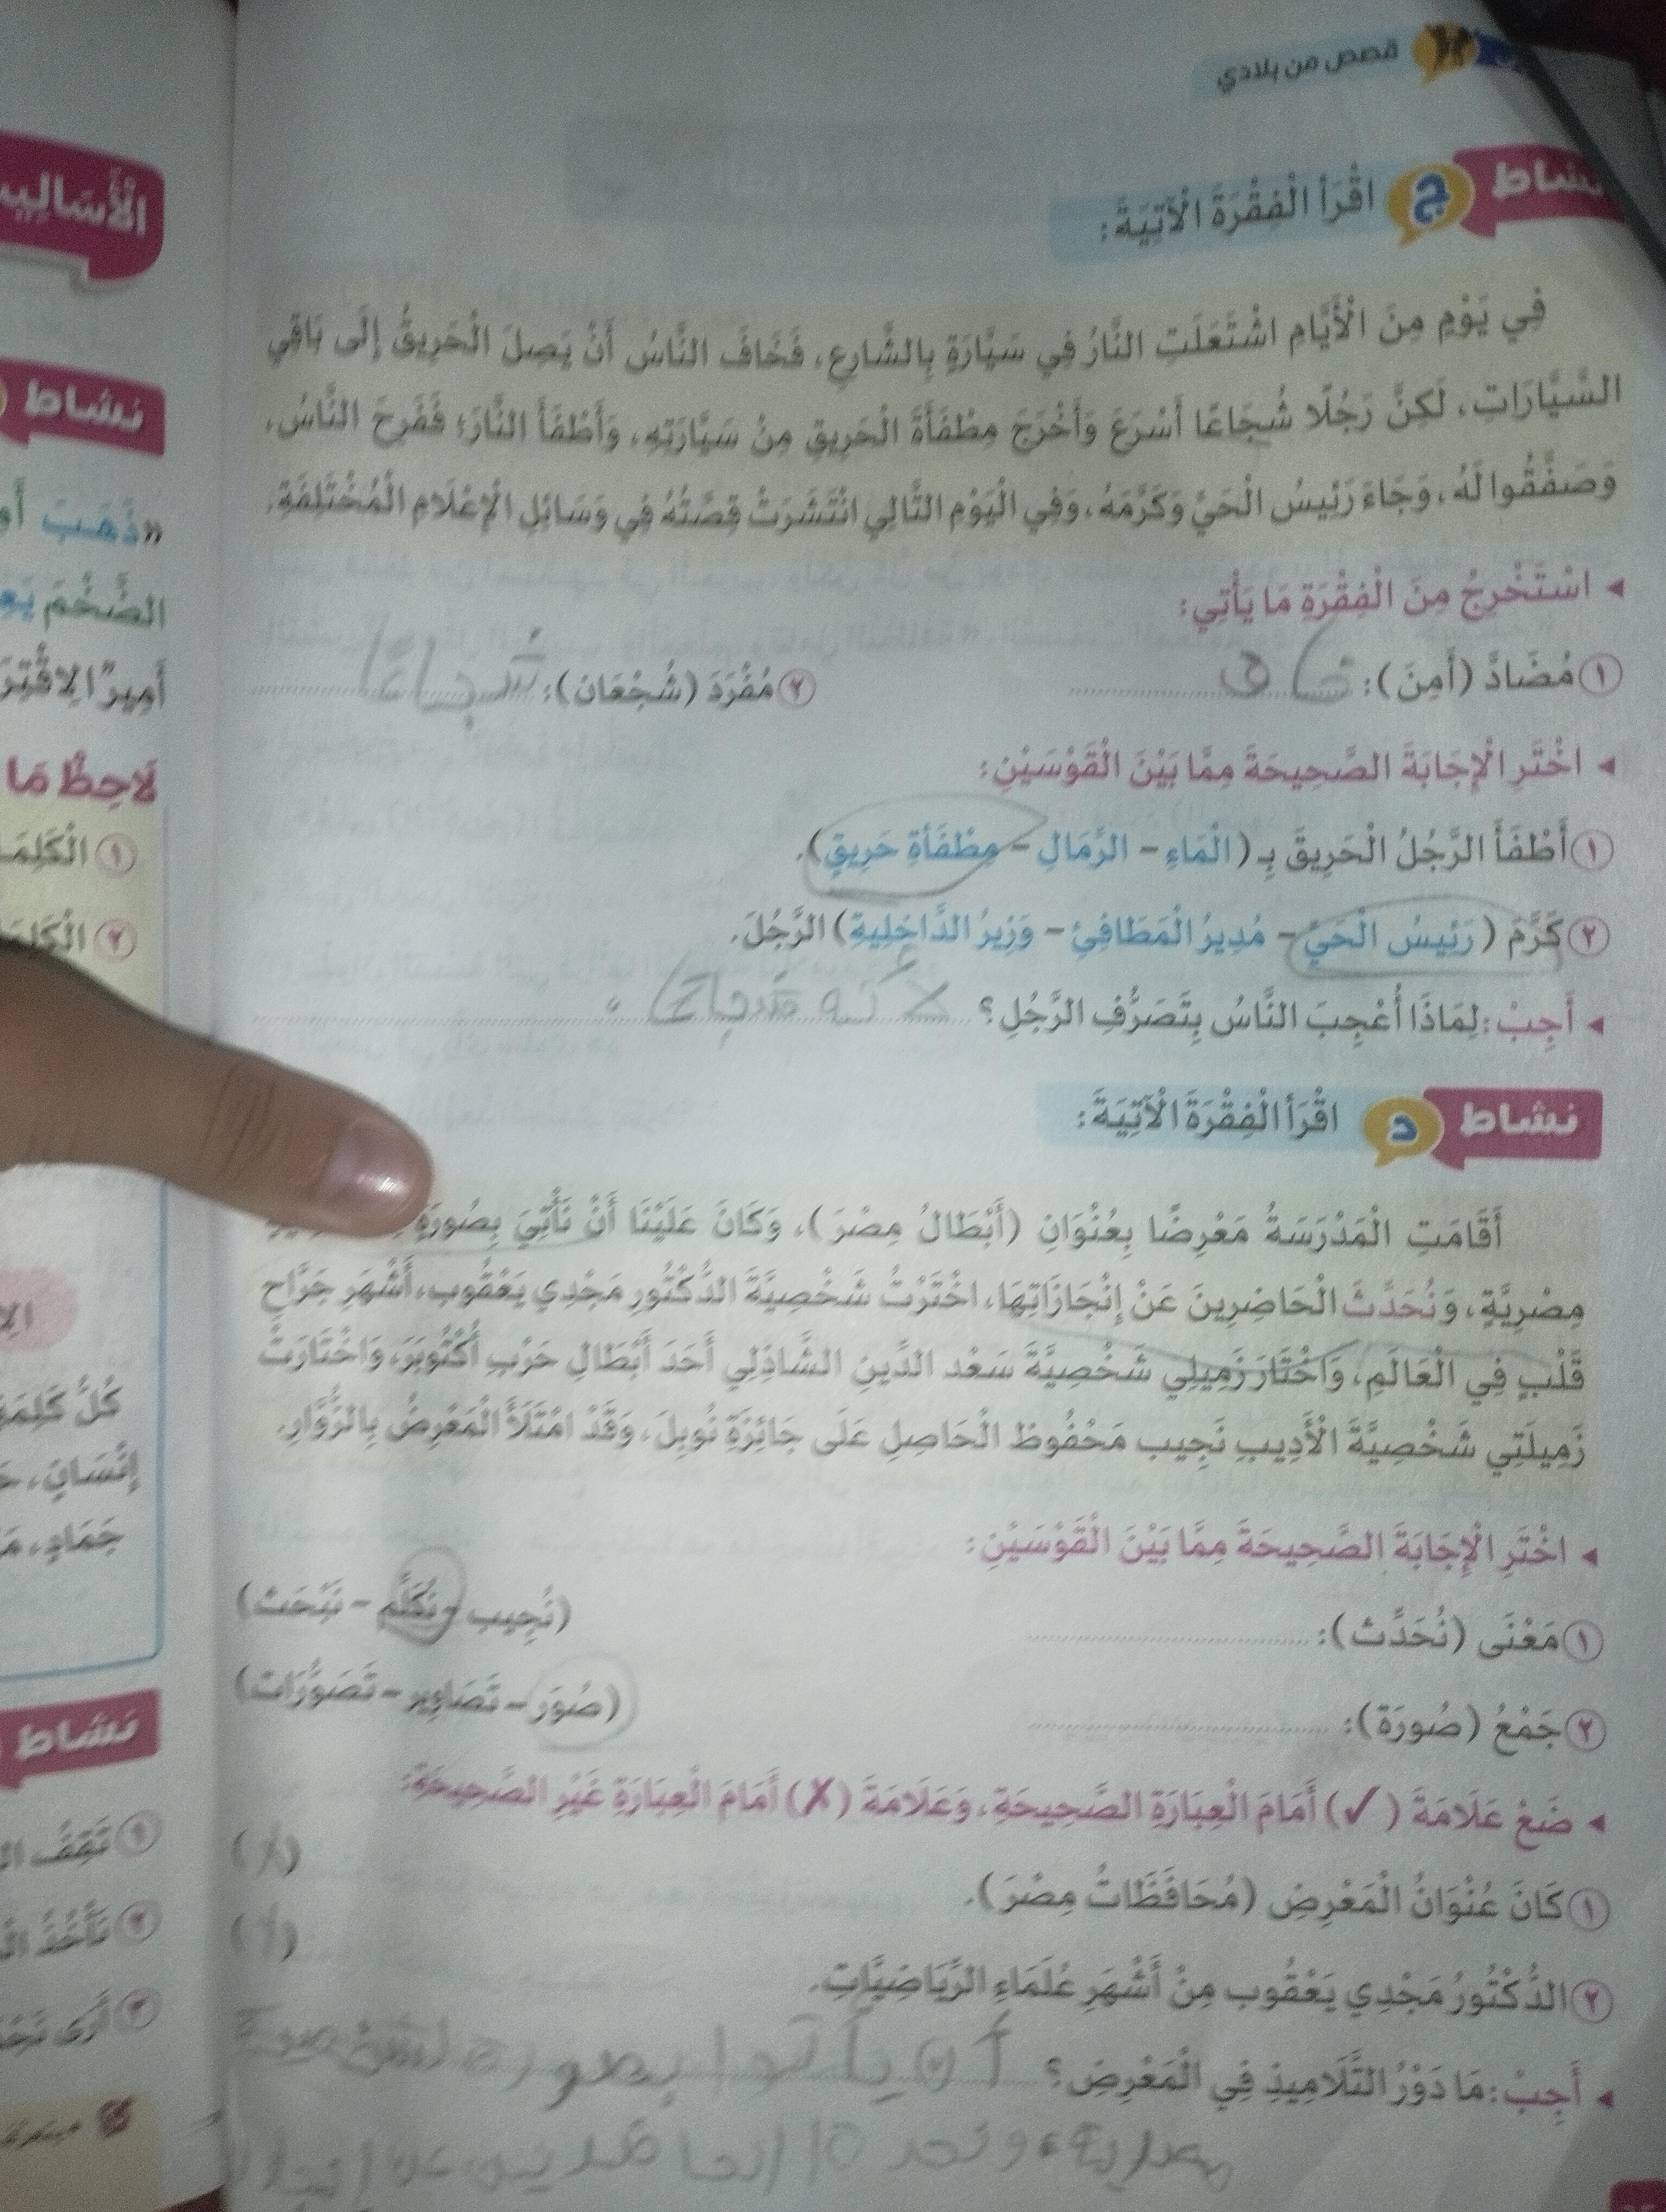 قصص من بلادي
نشاط ج اقْرَأِ الْفِقْرَةَ الْآتِيَةَ:
فِي يَوْمٍ مِنَ الْأَيَّامِ اشْتَعَلَتِ النَّارُ فِي سَيَّارَةٍ بِالشَّارِعِ، فَخَافَ النَّاسُ أَنْ يَصِلَ الْحَرِيقُ إِلَى بَاقِي
السَّيَّارَاتِ، لَكِنَّ رَجُلًا شُجَاعًا أَسْرَعَ وَأَخْرَجَ مِطْفَأَةَ الْحَرِيقِ مِنْ سَيَّارَتِهِ، وَأَطْفَأَ النَّارَ؛ فَفَرِحَ النَّاسُ،
وَصَفَّقُوا لَهُ، وَجَاءَ رَئِيسُ الْحَيِّ وَكَرَّمَهُ، وَفِي الْيَوْمِ التَّالِي انْتَشَرَتْ قِصَّتُهُ فِي وَسَائِلِ الْإِعْلَامِ الْمُخْتَلِفَةِ.
◂ اسْتَخْرِجْ مِنَ الْفِقْرَةِ مَا يَأْتِي:
١ مُضَادَّ (أَمِنَ): خاف ٢ مُفْرَدَ (شُجْعَان): شُجاعًا
◂ اخْتَرِ الْإِجَابَةَ الصَّحِيحَةَ مِمَّا بَيْنَ الْقَوْسَيْنِ:
١ أَطْفَأَ الرَّجُلُ الْحَرِيقَ بِـ (الْمَاءِ – الرِّمَالِ – مِطْفَأَةِ حَرِيقٍ).
٢ كَرَّمَ (رَئِيسُ الْحَيِّ – مُدِيرُ الْمَطَافِئِ – وَزِيرُ الدَّاخِلِيةِ) الرَّجُلَ.
◂ أَجِبْ: لِمَاذَا أُعْجِبَ النَّاسُ بِتَصَرُّفِ الرَّجُلِ؟ لأنه شجاع
نشاط د اقْرَأِ الْفِقْرَةَ الْآتِيَةَ:
أَقَامَتِ الْمَدْرَسَةُ مَعْرِضًا بِعُنْوَانِ (أَبْطَالُ مِصْرَ)، وَكَانَ عَلَيْنَا أَنْ نَأْتِيَ بِصُورَةِ
مِصْرِيَّةٍ، وَنُحَدِّثَ الْحَاضِرِينَ عَنْ إِنْجَازَاتِهَا، اخْتَرْتُ شَخْصِيَّةَ الدُّكْتُورِ مَجْدِي يَعْقُوب، أَشْهَرِ جَرَّاحِ
قَلْبٍ فِي الْعَالَمِ، وَاخْتَارَ زَمِيلِي شَخْصِيَّةَ سَعْد الدِّينِ الشَّاذِلِي أَحَدَ أَبْطَالِ حَرْبِ أُكْتُوبَرَ، وَاخْتَارَتْ
زَمِيلَتِي شَخْصِيَّةَ الْأَدِيبِ نَجِيب مَحْفُوظ الْحَاصِلِ عَلَى جَائِزَةِ نُوبِلَ، وَقَدْ امْتَلَأَ الْمَعْرِضُ بِالزُّوَّارِ.
◂ اخْتَرِ الْإِجَابَةَ الصَّحِيحَةَ مِمَّا بَيْنَ الْقَوْسَيْنِ:
١ مَعْنَى (نُحَدِّث): (نُجِيب – نُكَلِّم – نَبْحَث)
٢ جَمْعُ (صُورَة): (صُوَر – تَصَاوِير – تَصَوُّرَات)
◂ ضَعْ عَلَامَةَ (✓) أَمَامَ الْعِبَارَةِ الصَّحِيحَةِ، وَعَلَامَةَ (✗) أَمَامَ الْعِبَارَةِ غَيْرِ الصَّحِيحَةِ:
١ كَانَ عُنْوَانُ الْمَعْرِضِ (مُحَافَظَاتُ مِصْرَ).
٢ الدُّكْتُورُ مَجْدِي يَعْقُوب مِنْ أَشْهَرِ عُلَمَاءِ الرِّيَاضِيَّاتِ.
◂ أَجِبْ: مَا دَوْرُ التَّلَامِيذِ فِي الْمَعْرِضِ؟ أن يأتوا
الْأَسَالِيب
نشاط
«ذَهَبَ
الضَّخْمَ
أَمِيرٌ
لَاحِظْ مَا
كُلُّ
إِنْسَانٍ،
جَمَادٍ،
نشاط
١ تَقِفُ
٢ نَأْخُذُ
٣ أَرَى